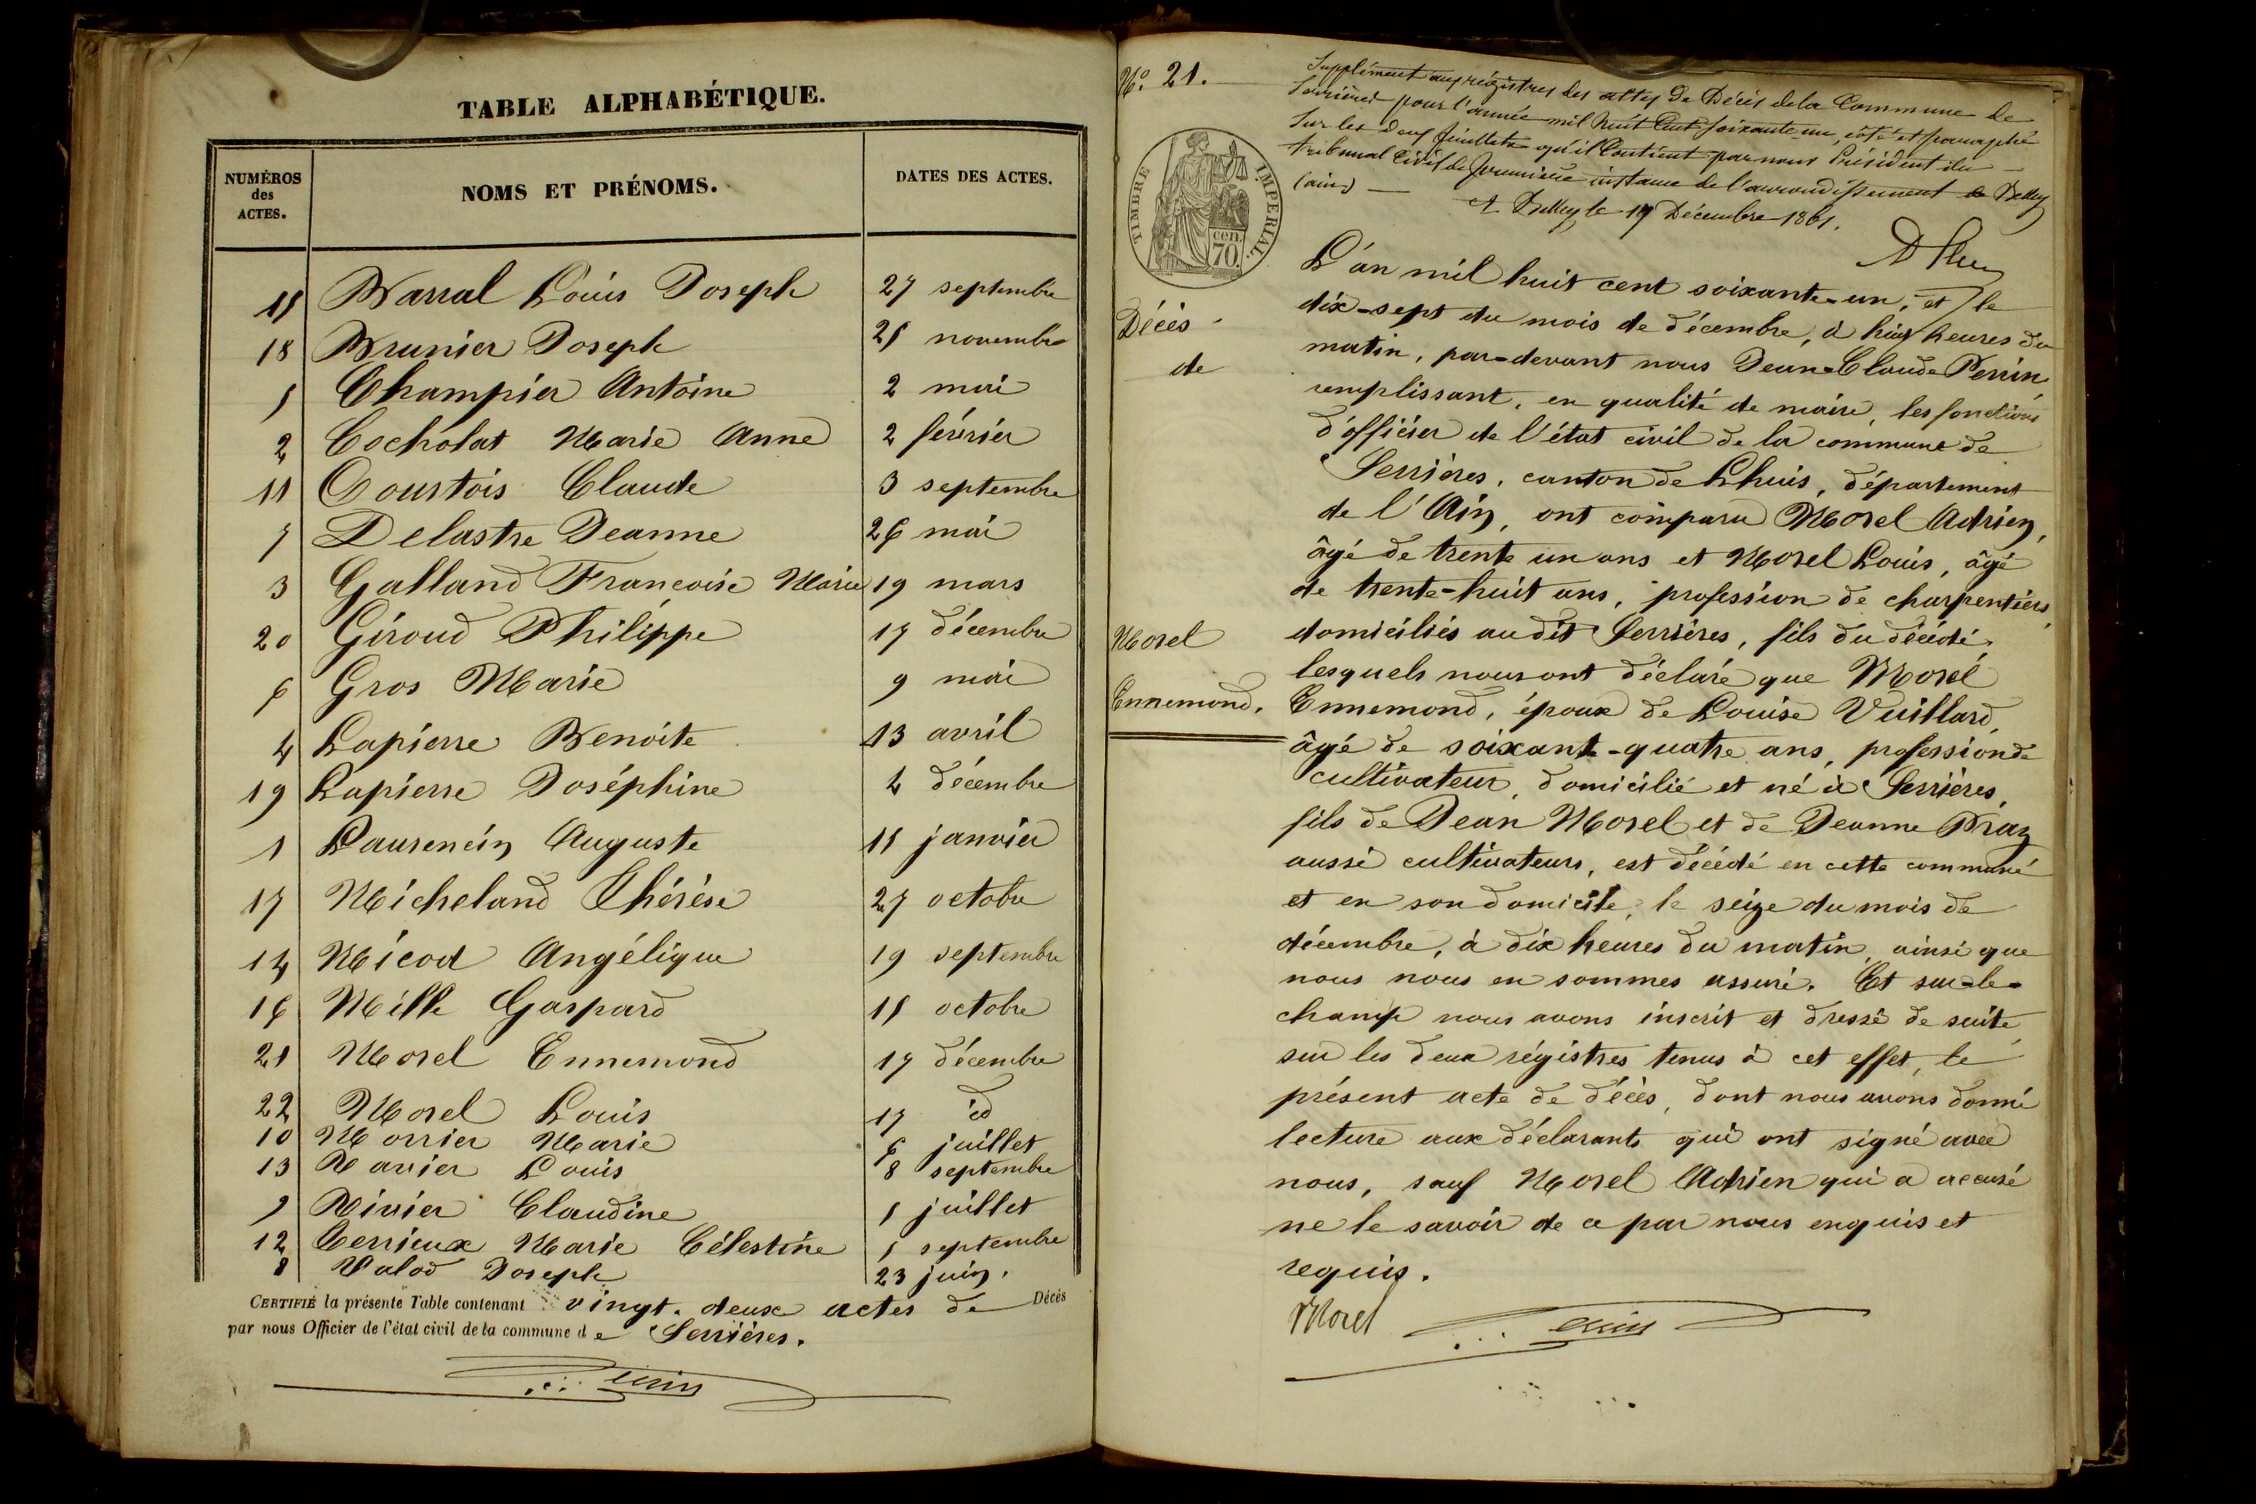 TABLE ALPHABÉTIQUE.
NUMÉROS des ACTES. NOMS ET PRÉNOMS. DATES DES ACTES.
15 Barral Louis Joseph 27 septembre
18 Brunier Joseph 25 novembre
5 Champier Antoine 2 mai
2 Cocholat Marie Anne 2 février
11 Courtois Claude 3 septembre
7 Delastre Jeanne 26 mai
3 Galland Françoise Marie 19 mars
20 Giroud Philippe 17 décembre
6 Gros Marie 9 mai
4 Lapierre Benoite 13 avril
19 Lapierre Joséphine 4 décembre
1 Laurencin Auguste 15 janvier
17 Micheland Thérèse 27 octobre
14 Micod Angélique 19 septembre
16 Mille Gaspard 15 octobre
21 Morel Ennemond 17 décembre
22 Morel Louis 17 id
10 Morrier Marie 6 juillet
13 Ravier Louis 8 septembre
9 Rivier Claudine 5 juillet
12 Terrieux Marie Célestine 5 septembre
8 Valod Joseph 23 juin.
CERTIFIÉ la présente Table contenant vingt-deux actes de Décès
par nous Officier de l'état civil de la commune de Serrières.
Perrin
No. 21.
Supplément aux régistres des actes de Décès de la Commune de
Serrières pour l'année mil huit Cent soixante-un, côté et paraphé
sur les deux feuillets qu'il Contient par nous Président du
tribunal Civil de Première instance de l'arrondissement de Belley
(ain)
A Belley le 17 Décembre 1861.
TIMBRE IMPERIAL.
cen.
70.
L'an mil huit cent soixante-un, et le
Décès
dix-sept du mois de décembre, à huit heures du
de
matin, par-devant nous Jean-Claude Perrin
remplissant, en qualité de maire, les fonctions
d'officier de l'état civil de la commune de
Serrières, canton de Lhuis, département
de l'Ain, ont comparu Morel Adrien,
âgé de trente un ans et Morel Louis, âgé
de trente-huit ans, profession de charpentiers,
Morel
domiciliés au dit Serrières, fils du décédé,
lesquels nous ont déclaré que Morel
Ennemond.
Ennemond, époux de Louise Vuillard,
âgé de soixante-quatre ans, profession de
cultivateur, domicilié et né à Serrières,
fils de Jean Morel et de Jeanne Braz
aussi cultivateurs, est décédé en cette commune
et en son domicile, le seize du mois de
décembre, à dix heures du matin, ainsi que
nous nous en sommes assuré. Et sur-le-
champ nous avons inscrit et dressé de suite
sur les deux régistres tenus à cet effet, le
présent acte de décès, dont nous avons donné
lecture aux déclarants qui ont signé avec
nous, sauf Morel Adrien qui a accusé
ne le savoir de ce par nous enquis et
requis.
Morel Perrin